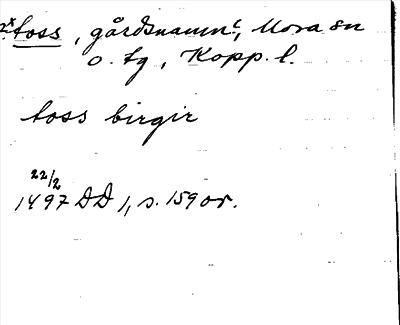 2.x toss, gårdsnamn?, Mora sn
o. tg, Kopp. l.
toss birgir
22/2
1497 DD 1, s. 159 or.